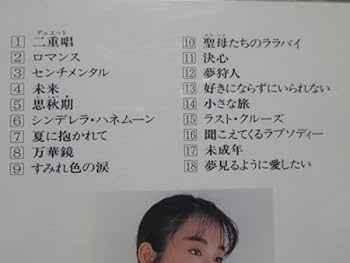 デュエット
1 二重唱
2 ロマンス
3 センチメンタル
4 未来
5 思秋期
6 シンデレラ・ハネムーン
7 夏に抱かれて
8 万華鏡
9 すみれ色の涙
マドンナ
10 聖母たちのララバイ
11 決心
12 夢狩人
13 好きにならずにいられない
14 小さな旅
15 ラスト・クルーズ
16 聞こえてくるラプソディー
17 未成年
18 夢見るように愛したい